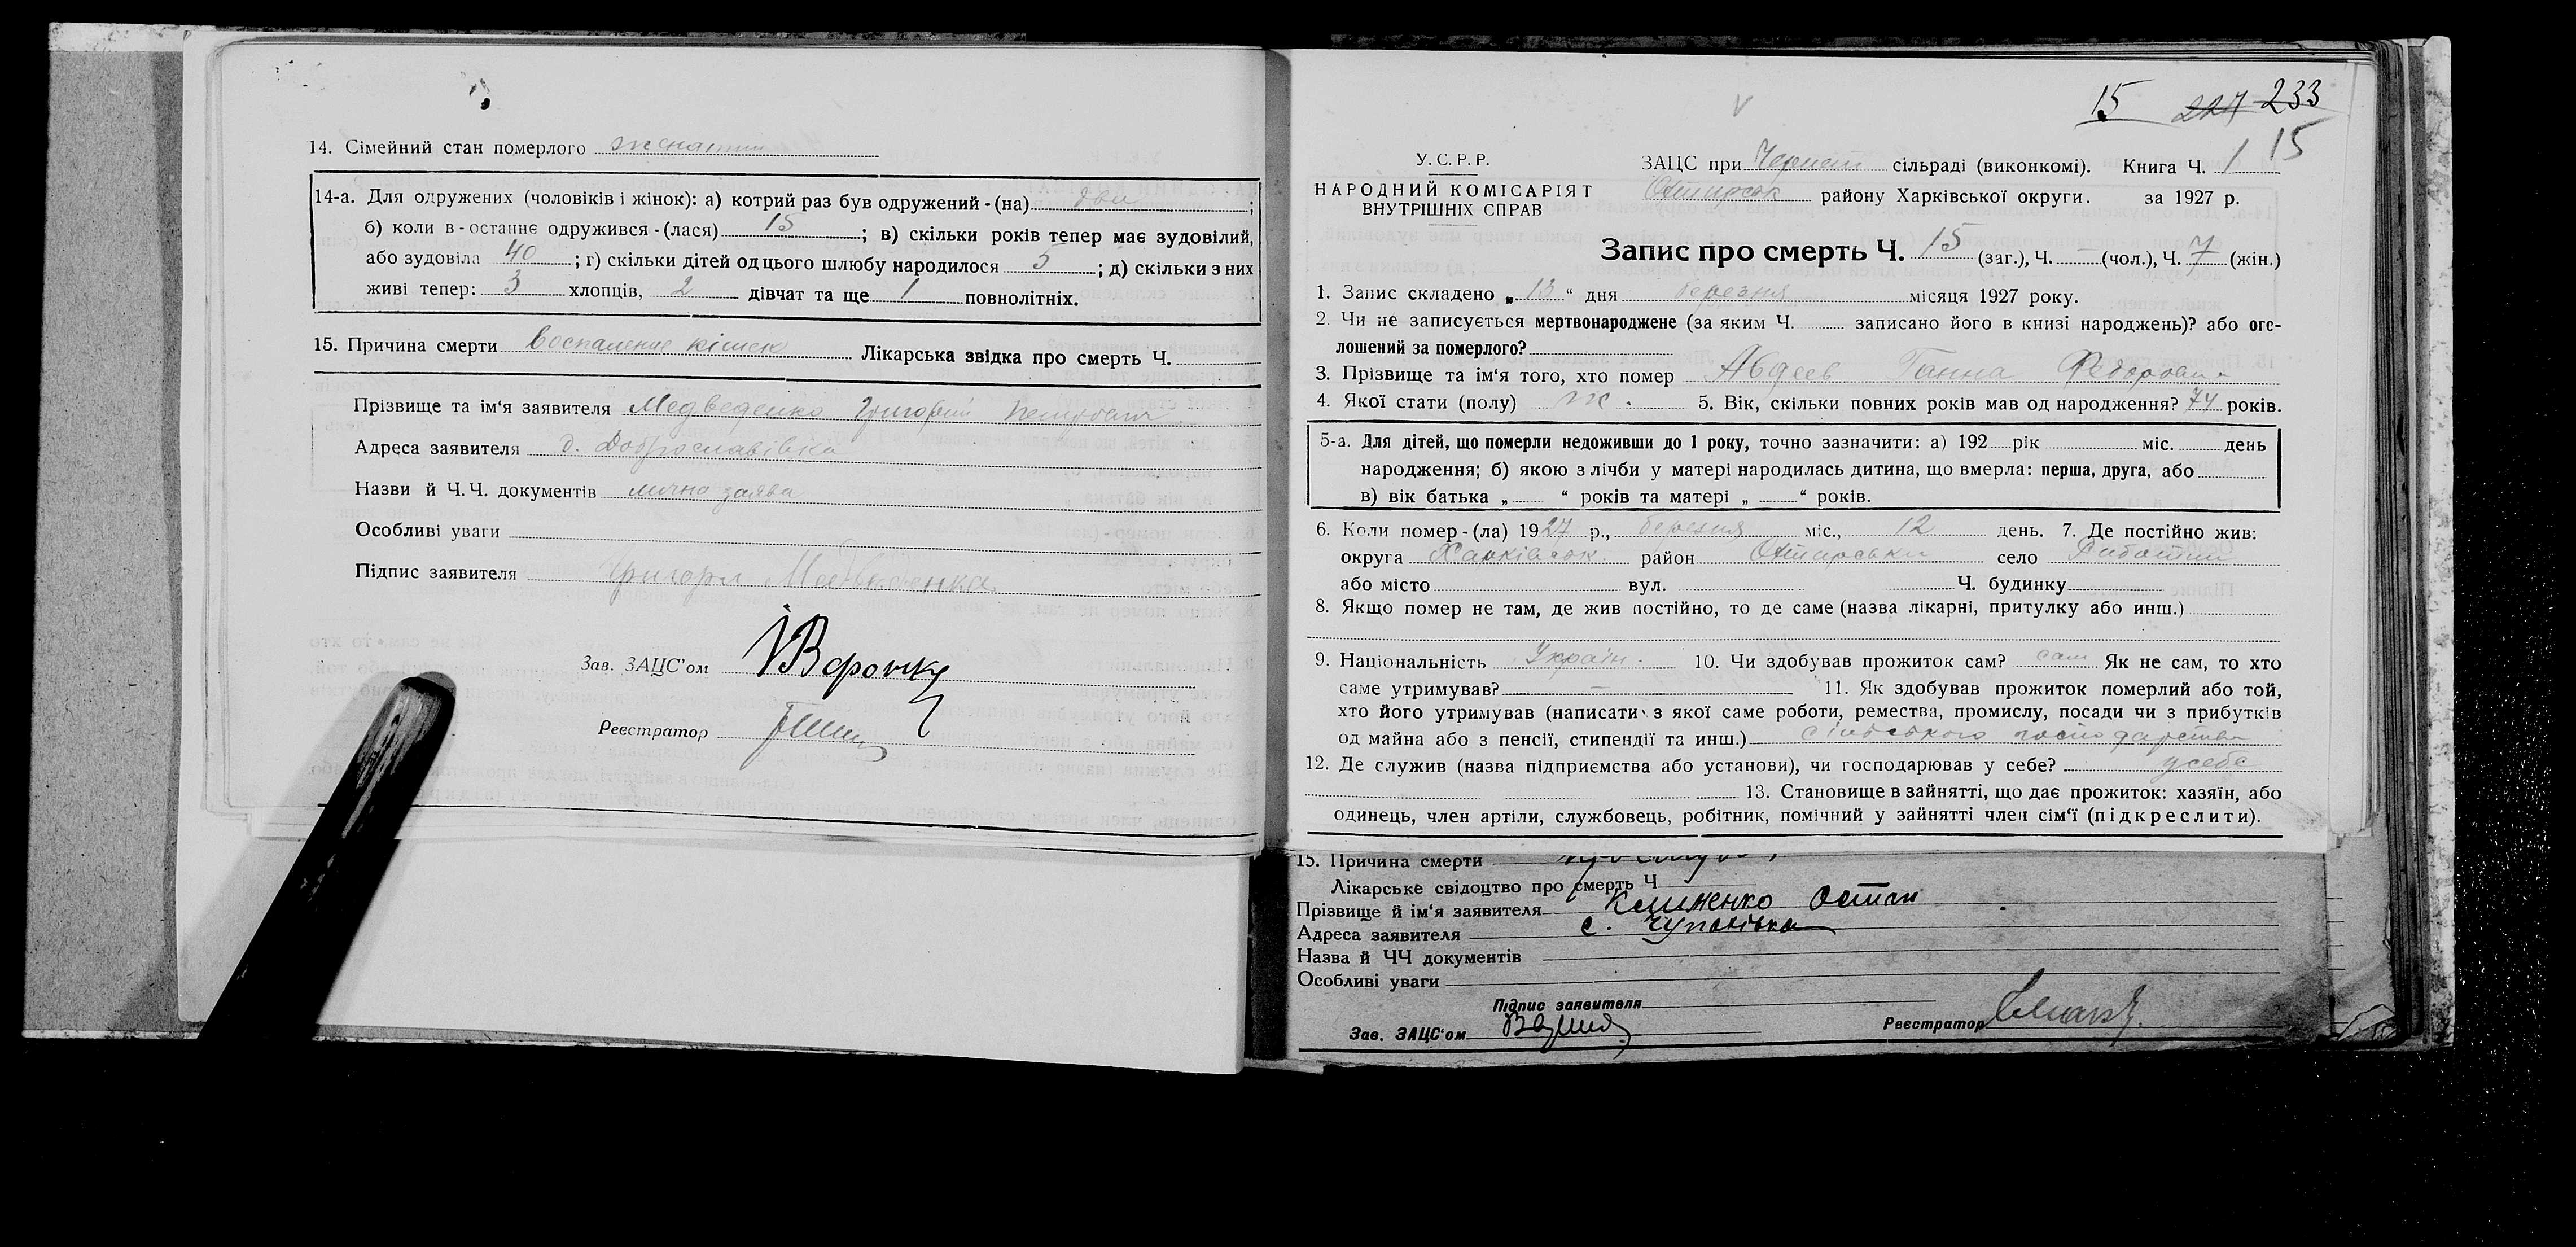 14. Сімейний стан померлого
14-а. Для одружених (чоловіків і жінок): а) котрий раз був одружений-(на) два ;
б) коли в-останнє одружився-(лася) 15 ; в) скільки років тепер має зудовілий,
або зудовіла 40 ; г) скільки дітей од цього шлюбу народилося 5 ; д) скільки з них
живі тепер: 3 хлопців, 2 дівчат та ще 1 повнолітніх.
15. Причина смерти Воспаление кішек Лікарська звідка про смерть Ч.
Прізвище та ім‘я заявителя Медведенко Григорій
Адреса заявителя д. Доброславівка
Назви й Ч.Ч. документів лична заява
Особливі уваги
Підпис заявителя Григорі Медведенка
Зав. ЗАЦС'ом
Реєстратор
15 227 233
15
У.С.Р.Р.
НАРОДНИЙ КОМІСАРІЯТ
ВНУТРІШНІХ СПРАВ
ЗАЦС при сільраді (виконкомі). Книга Ч. 1
району Харківської округи. за 1927 р.
Запис про смерть Ч. 15 (заг.), Ч. — (чол.), Ч. 7 (жін.)
1. Запис складено „ 13 “ дня березня місяця 1927 року.
2. Чи не записується мертвонароджене (за яким Ч. записано його в книзі народжень)? або ого-
лошений за померлого?
3. Прізвище та ім‘я того, хто помер Авдеев Ганна
4. Якої стати (полу) ж. 5. Вік, скільки повних років мав од народження? 74 років.
5-а. Для дітей, що померли недоживши до 1 року, точно зазначити: а) 192 рік міс. день
народження; б) якою з лічби у матері народилась дитина, що вмерла: перша, друга, або
в) вік батька „ “ років та матері „ “ років.
6. Коли помер-(ла) 1927 р., березня міс., 12 день. 7. Де постійно жив:
округа Харківськ. район село
або місто вул. Ч. будинку
8. Якщо помер не там, де жив постійно, то де саме (назва лікарні, притулку або инш.)
9. Національність Україн. 10. Чи здобував прожиток сам? сам Як не сам, то хто
саме утримував? — 11. Як здобував прожиток померлий або той,
хто його утримував (написати з якої саме роботи, ремества, промислу, посади чи з прибутків
од майна або з пенсії, стипендії та инш.) сільського господарства
12. Де служив (назва підприємства або установи), чи господарював у себе? у себе
13. Становище в зайнятті, що дає прожиток: хазяїн, або
одинець, член артіли, службовець, робітник, помічний у зайнятті член сім‘ї (підкреслити).
15. Причина смерти
Лікарське свідоцтво про смерть Ч
Прізвище й ім‘я заявителя Клименко Остап
Адреса заявителя с. Чупахівка
Назва й ЧЧ документів
Особливі уваги
Підпис заявителя
Зав. ЗАЦС'ом Реєстратор